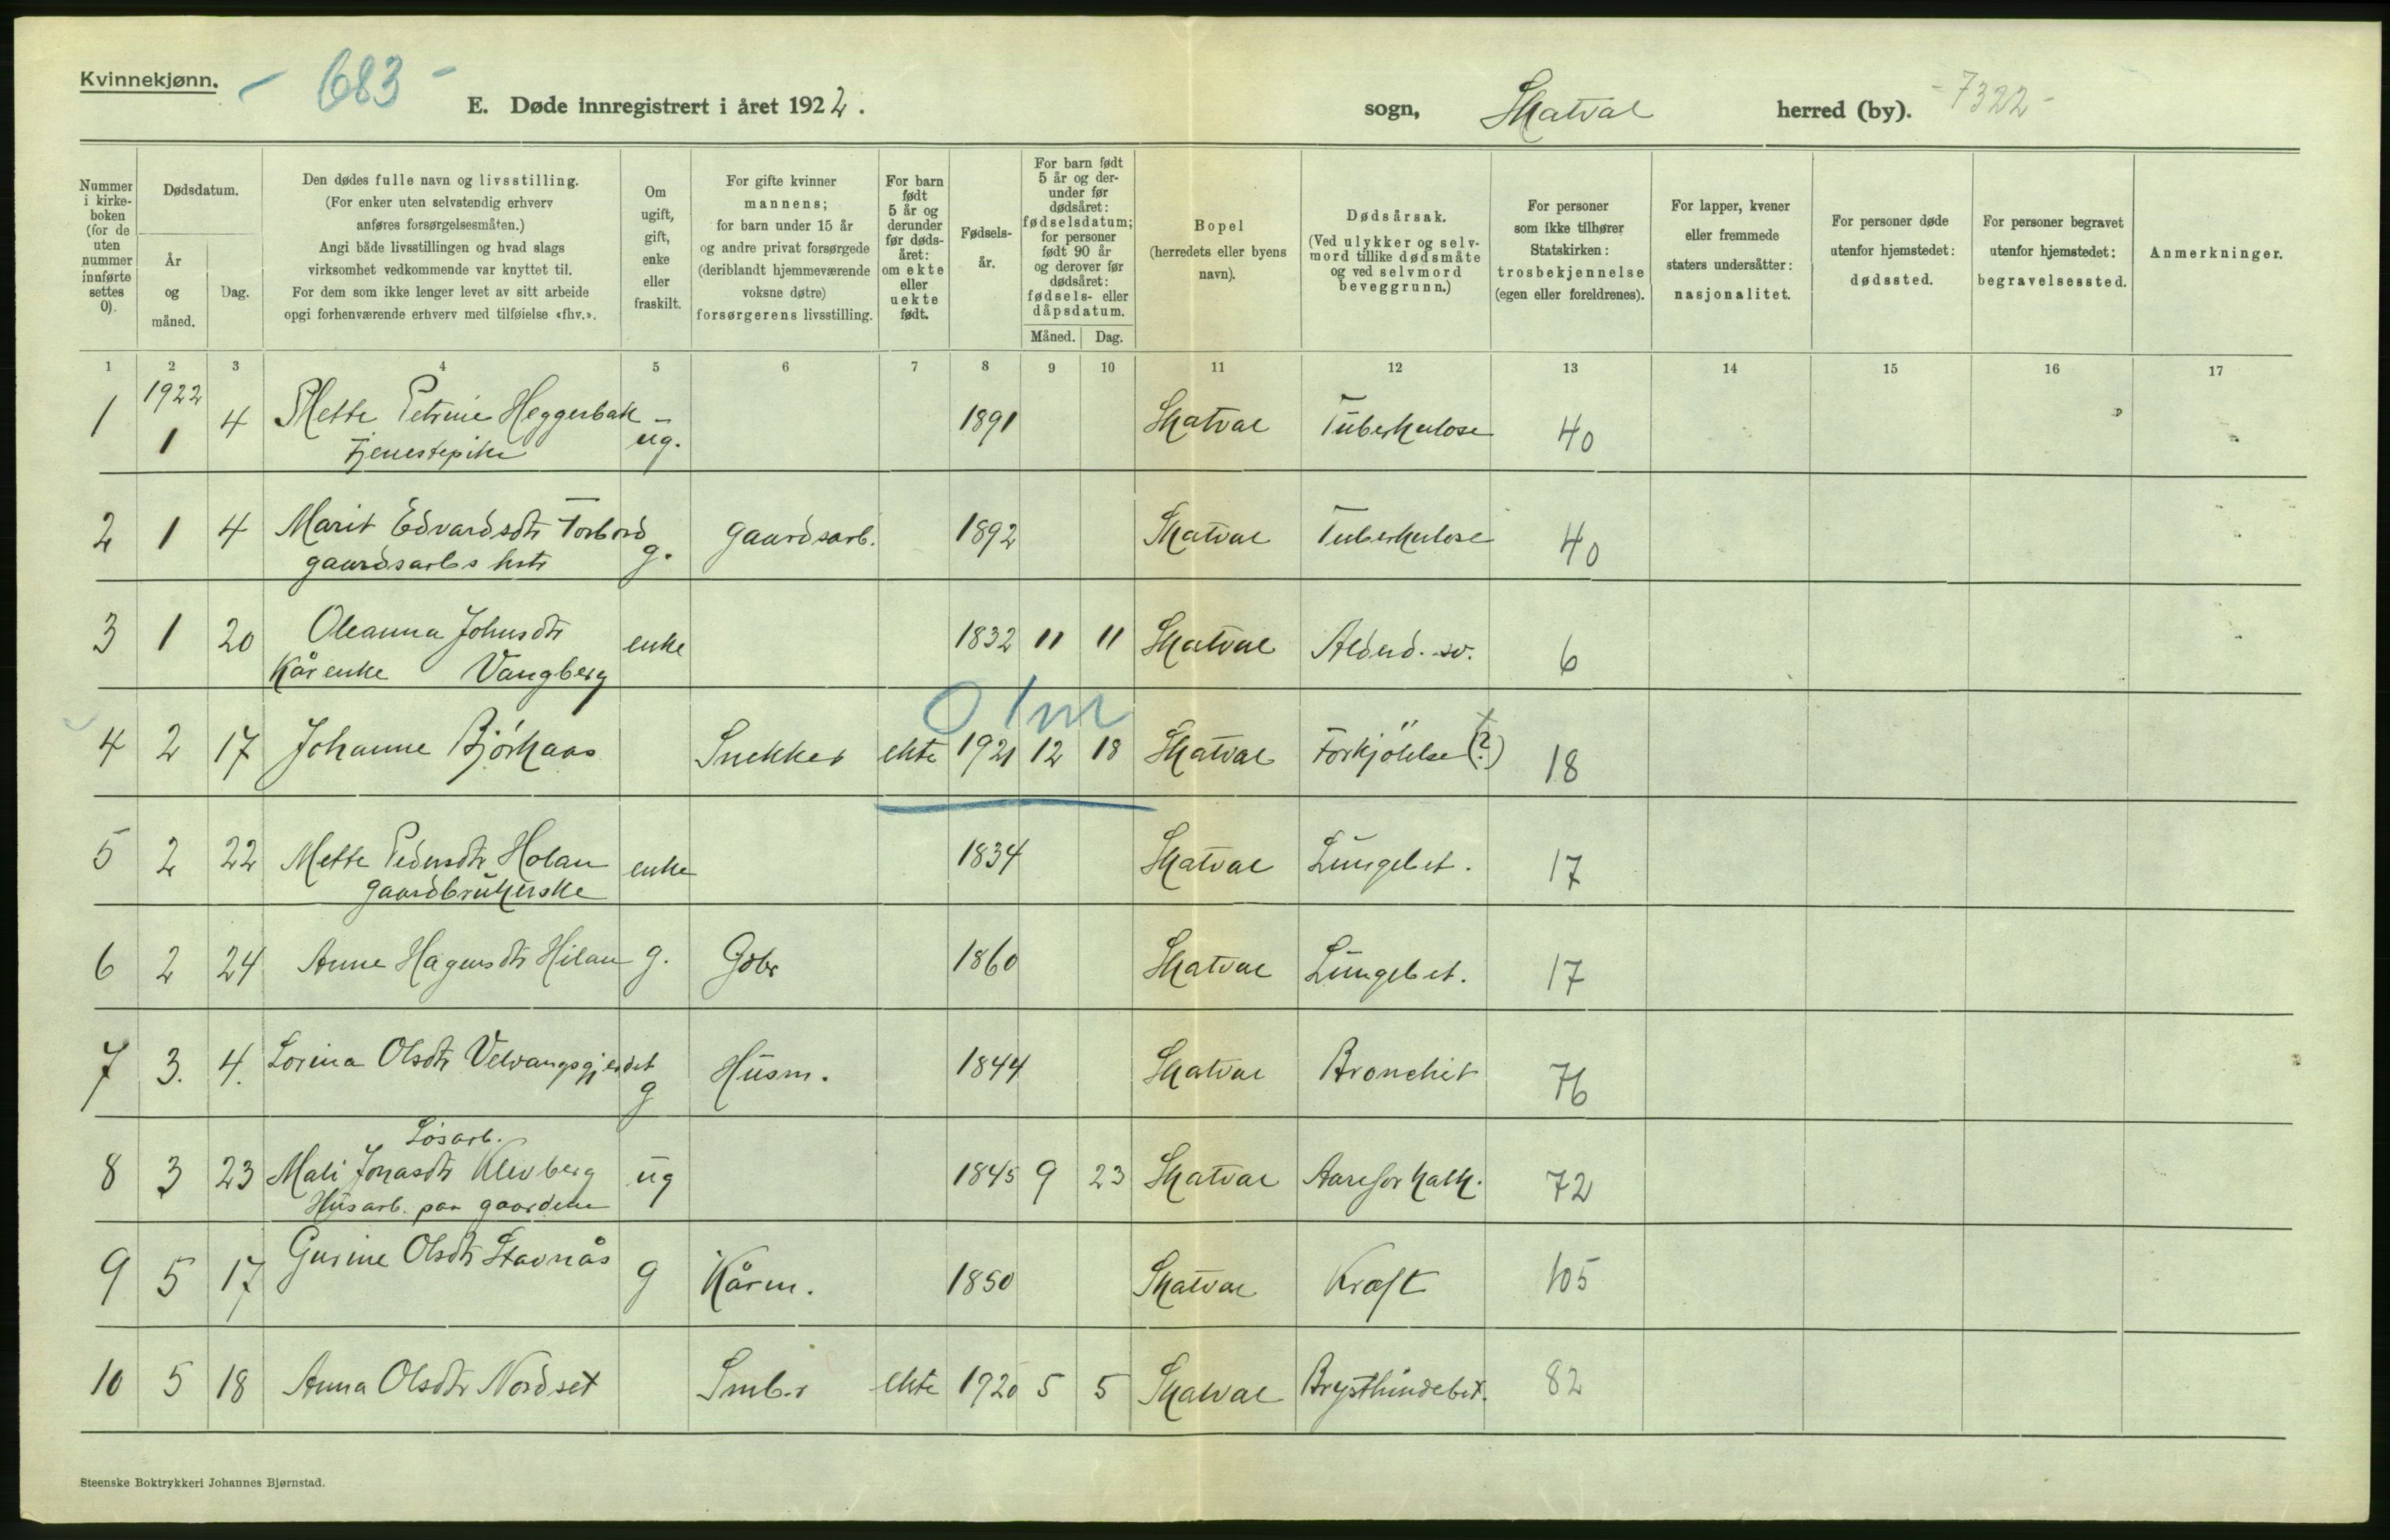 Kvinnekjønn.
- 683 -
E. Døde innregistrert i året 1922.
sogn, Skatval herred (by). -7322-
Nummer i kirke-boken (for de uten nummer innførte settes 0).
Dødsdatum.
År og måned.
Dag.
Den dødes fulle navn og livsstilling.
(For enker uten selvstendig erhverv
anføres forsørgelsesmåten.)
Angi både livsstillingen og hvad slags
virksomhet vedkommende var knyttet til.
For dem som ikke lenger levet av sitt arbeide
opgi forhenværende erhverv med tilføielse «fhv.».
Om ugift, gift, enke eller fraskilt.
For gifte kvinner
mannens;
for barn under 15 år
og andre privat forsørgede
(deriblandt hjemmeværende
voksne døtre)
forsørgerens livsstilling.
For barn født 5 år og derunder før døds-året: om ekte eller uekte født.
Fødsels-år.
For barn født 5 år og der-under før dødsåret: fødselsdatum; for personer født 90 år og derover før dødsåret: fødsels- eller dåpsdatum.
Måned. Dag.
Bopel
(herredets eller byens navn).
Dødsårsak.
(Ved ulykker og selv-mord tillike dødsmåte og ved selvmord beveggrunn.)
For personer som ikke tilhører Statskirken: trosbekjennelse (egen eller foreldrenes).
For lapper, kvener eller fremmede staters undersåtter: nasjonalitet.
For personer døde utenfor hjemstedet: dødssted.
For personer begravet utenfor hjemstedet: begravelsessted.
Anmerkninger.
1 2 3 4 5 6 7 8 9 10 11 12 13 14 15 16 17
1922
1 1 4 Mette Petrine Heggerbak ug. 1891 Skatval Tuberkulose 40
Tjenestepike
2 1 4 Marit Edvardsdtr Forbord g. gaardsarb. 1892 Skatval Tuberkulose 40
gaardsarbs hstr
3 1 20 Oleanna Johnsdtr enke 1832 11 11 Skatval Alderd. sv. 6
Kårenke Vangberg
0 1m
4 2 17 Johanne Bjørkaas Snekker ekte 1921 12 18 Skatval Forkjölelse (?) 18
5 2 22 Mette Pedersdtr Holan enke 1834 Skatval Lungebet. 17
gaardbrukerske
6 2 24 Anne Hagensdtr Hilan g. Gdbr 1860 Skatval Lungebet. 17
7 3. 4. Lorina Olsdtr Velvangsgjerdet g Husm. 1844 Skatval Bronchit 76
Løsarb.
8 3 23 Mali Jonasdtr Klevberg ug 1845 9 23 Skatval Aareforkalk. 72
Husarb. paa gaardene
9 5 17 Gurine Olsdtr Stavnås g Kårm. 1850 Skatval Kræft 105
10 5 18 Anna Olsdtr Nordset Smb.r ekte 1920 5 5 Skatval Brysthindebet. 82
Steenske Boktrykkeri Johannes Bjørnstad.